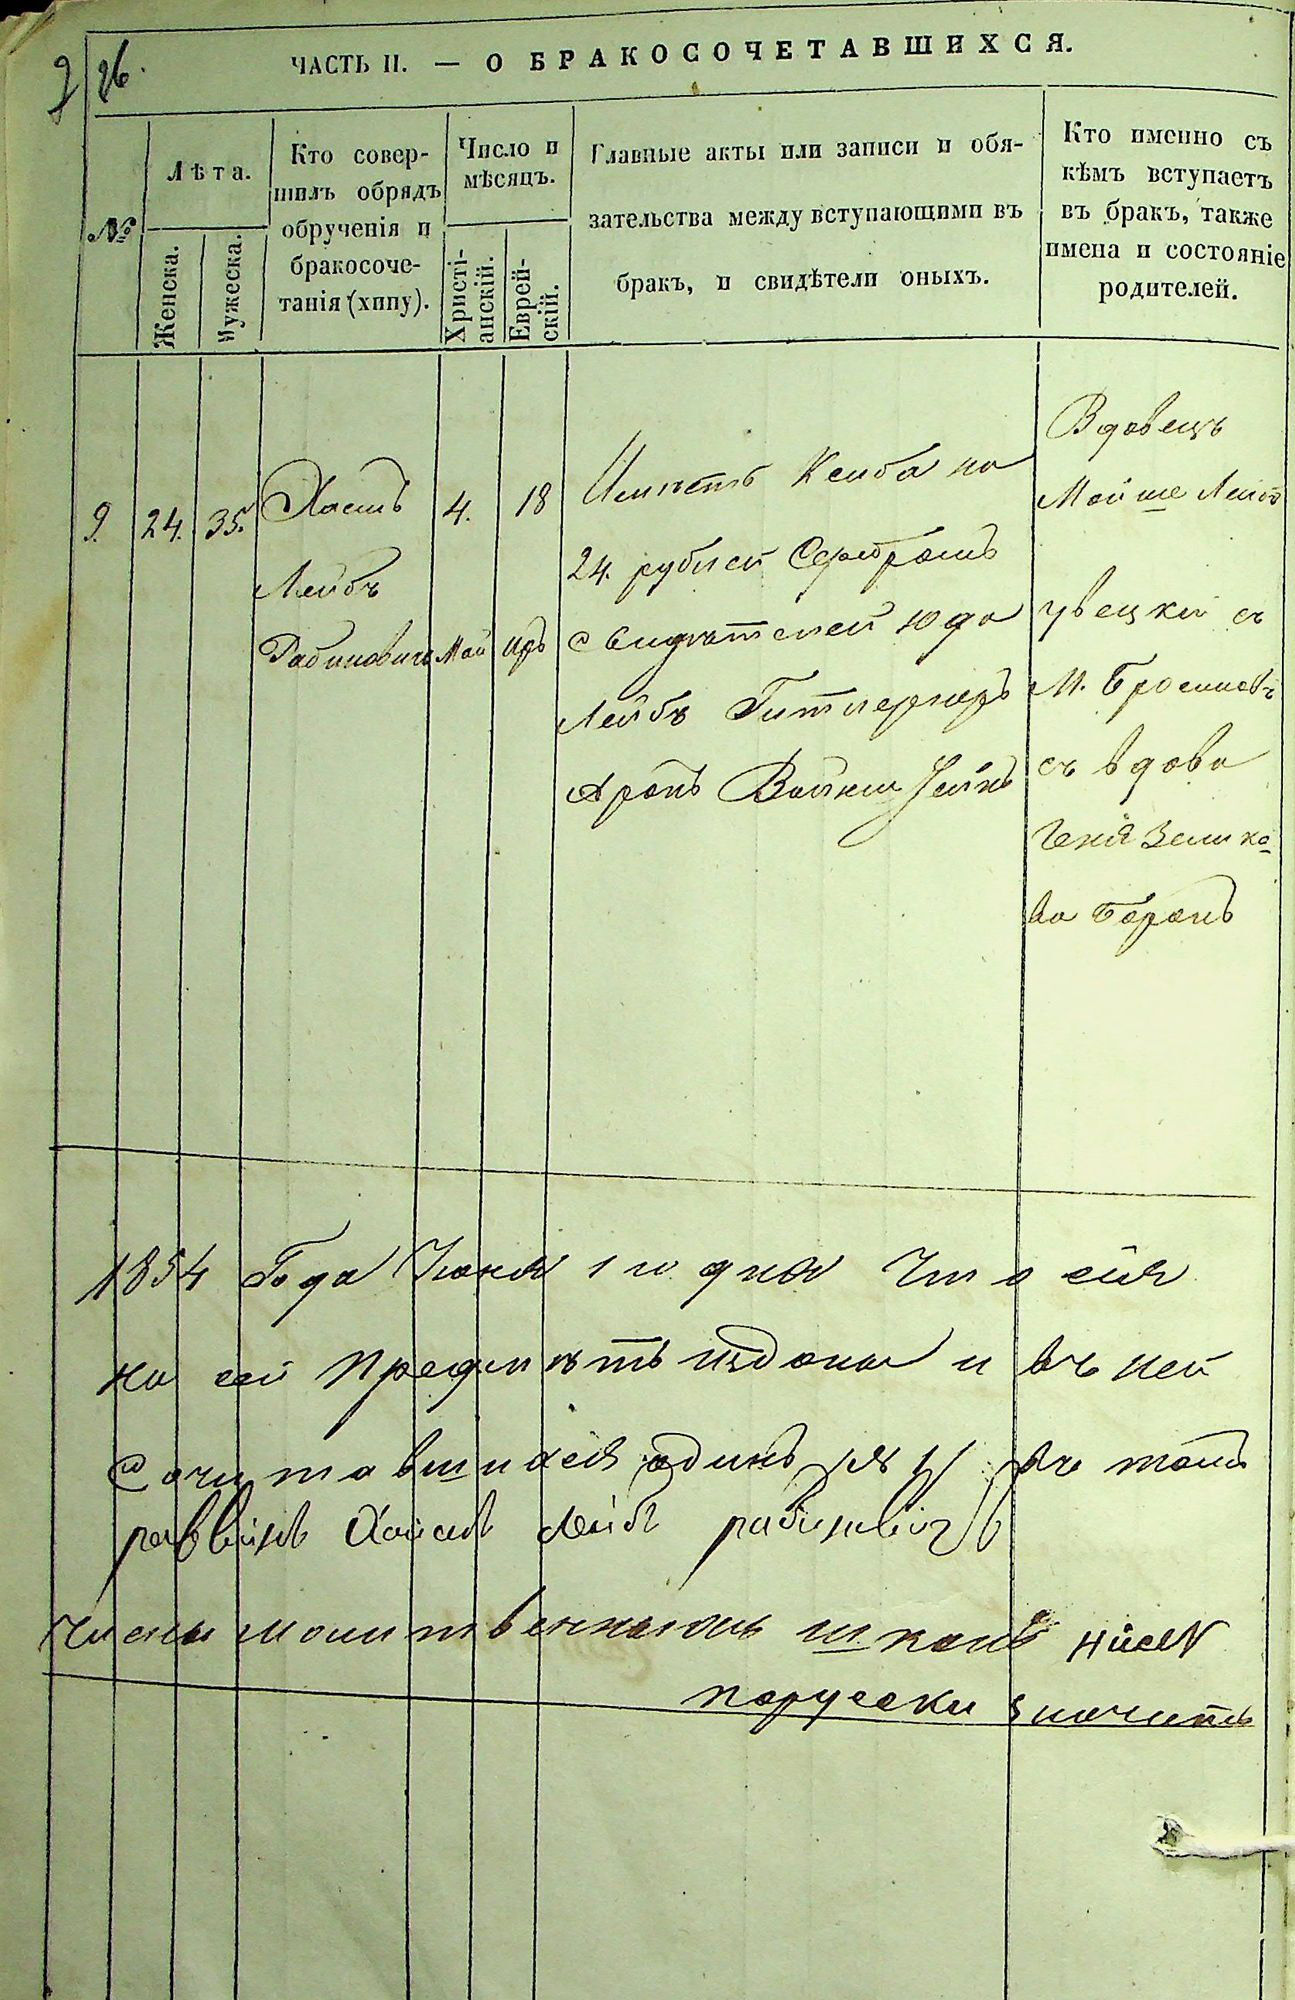 26.
ЧАСТЬ II. — О БРАКОСОЧЕТАВШИХСЯ.
№
Лѣта.
Женска.
Мужеска.
Кто совер-
шилъ обрядъ
обрученія и
бракосоче-
танія (хипу).
Число и
мѣсяцъ.
Христі-
анскій.
Еврей-
скій.
Главные акты или записи и обя-
зательства между вступающими въ
бракъ, и свидѣтели оныхъ.
Кто именно съ
кѣмъ вступаетъ
въ бракъ, также
имена и состояніе
родителей.
9.
24.
35.
Хаимъ
Лейбъ
Рабиновичъ
4.
Май
18
Иръ
Имѣетъ Ксиба на
24. рублей Серебромъ
Свидѣтелей Юда
Лейбъ
Аронъ
Вдовецъ
Мойше Лейб
съ
М.
съ вдова
Зелико
ва
1854 Года Июня 1 го дня Что сія
на сей предметъ издана и въ ней
сочитавшихся одинъ № 1 въ томъ
раввинъ Хаимъ Лейбъ рабиновичъ
Члены молитвенныхъ школъ
порусски значитъ